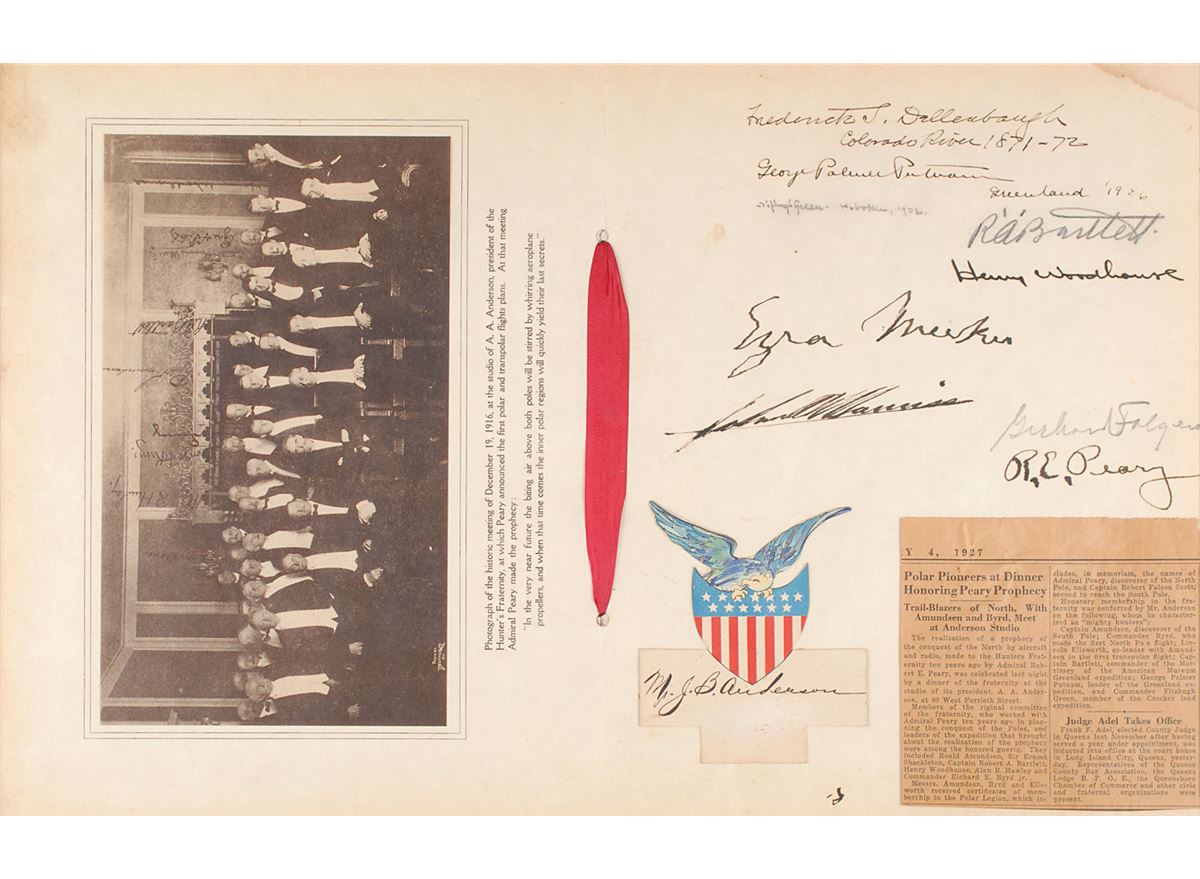 Photograph of the historic meeting of December 19, 1916, at the studio of A. A. Anderson, president of the
Hunter's Fraternity, at which Peary announced the first polar and transpolar flights plans. At that meeting
Admiral Peary made the prophecy:
"In the very near future the biting air above both poles will be stirred by whirring aeroplane
propellers, and when that time comes the inner polar regions will quickly yield their last secrets."
Frederick S. Dellenbaugh
Colorado River 1871-72
George Palmer Putnam
Greenland 1926
Fitzhugh Green - Hoboken, 1926.
R A Bartlett
Henry Woodhouse
Ezra Meeker
Folger
R. E. Peary
M. J. B. Anderson
Y 4, 1927
Polar Pioneers at Dinner
Honoring Peary Prophecy
Trail-Blazers of North, With
Amundsen and Byrd, Meet
at Anderson Studio
The realization of a prophecy of
the conquest of the North by aircraft
and radio, made to the Hunters Frat-
ernity ten years ago by Admiral Rob-
ert E. Peary, was celebrated last night
by a dinner of the fraternity at the
studio of its president, A. A. Ander-
son, at 80 West Fortieth Street.
Members of the riginal committee
of the fraternity, who worked with
Admiral Peary ten years ago in plan-
ning the conquest of the Poles, and
leaders of the expedition that brought
about the realization of the prophecy
were among the honored guests. They
included Roald Amundsen, Sir Ernset
Shackleton, Captain Robert A. Bartlett,
Henry Woodhouse, Alan R. Hawley and
Commander Richard E. Byrd jr.
Messrs. Amundson, Byrd and Ells-
worth received certificates of mem-
bership in the Polar Legion, which in-
cludes, in memoriam, the names of
Admiral Peary, discoverer of the North
Pole, and Captain Robert Falson Scott,
second to reach the South Pole.
Honorary membership in the fra-
ternity was conferred by Mr. Anderson
on the following, whom he character-
ized as "mighty hunters":
Captain Amundsen, discoverer of the
South Pole; Commander Byrd, who
made the first North Pole flight; Lin-
coln Ellsworth, co-leader with Amund-
sen in the first transpolar flight; Cap-
tain Bartlett, commander of the Mor-
rissey of the American Museum
Greenland expedition; George Palmer
Putnam, leader of the Greenland ex-
pedition, and Commander Fitzhugh
Green, member of the Crocker land
expedition.
Judge Adel Takes Office
Frank F. Adel, elected County Judge
in Queens last November after having
served a year under appointment, was
inducted into office at the court house
in Long Island City, Queens, yester-
day. Representatives of the Queens
County Bar Association, the Queens
Lodge B. P. O. E., the Queensboro
Chamber of Commerce and other civic
and fraternal organizations were
present.